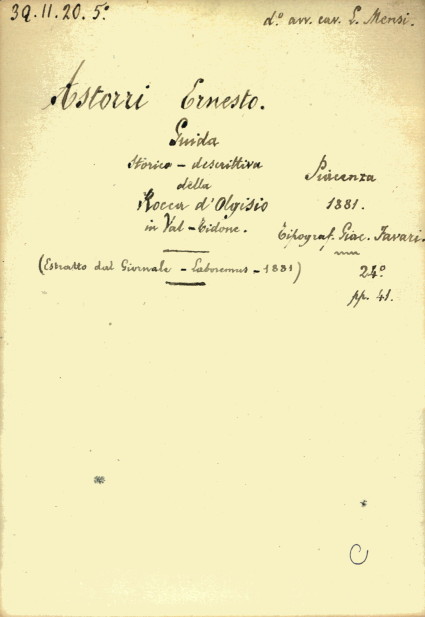 39.11.20.5º
dº. avv. cav. L. Mensi.
Astorri Ernesto.
Guida
storico-descrittiva
della
Rocca d'Olgisio
in Val-Tidone.
Piacenza
1881.
Tipograf. Giac. Favari.
(Estratto dal Giornale - Laboremus - 1881)
24º
pp. 41.
C